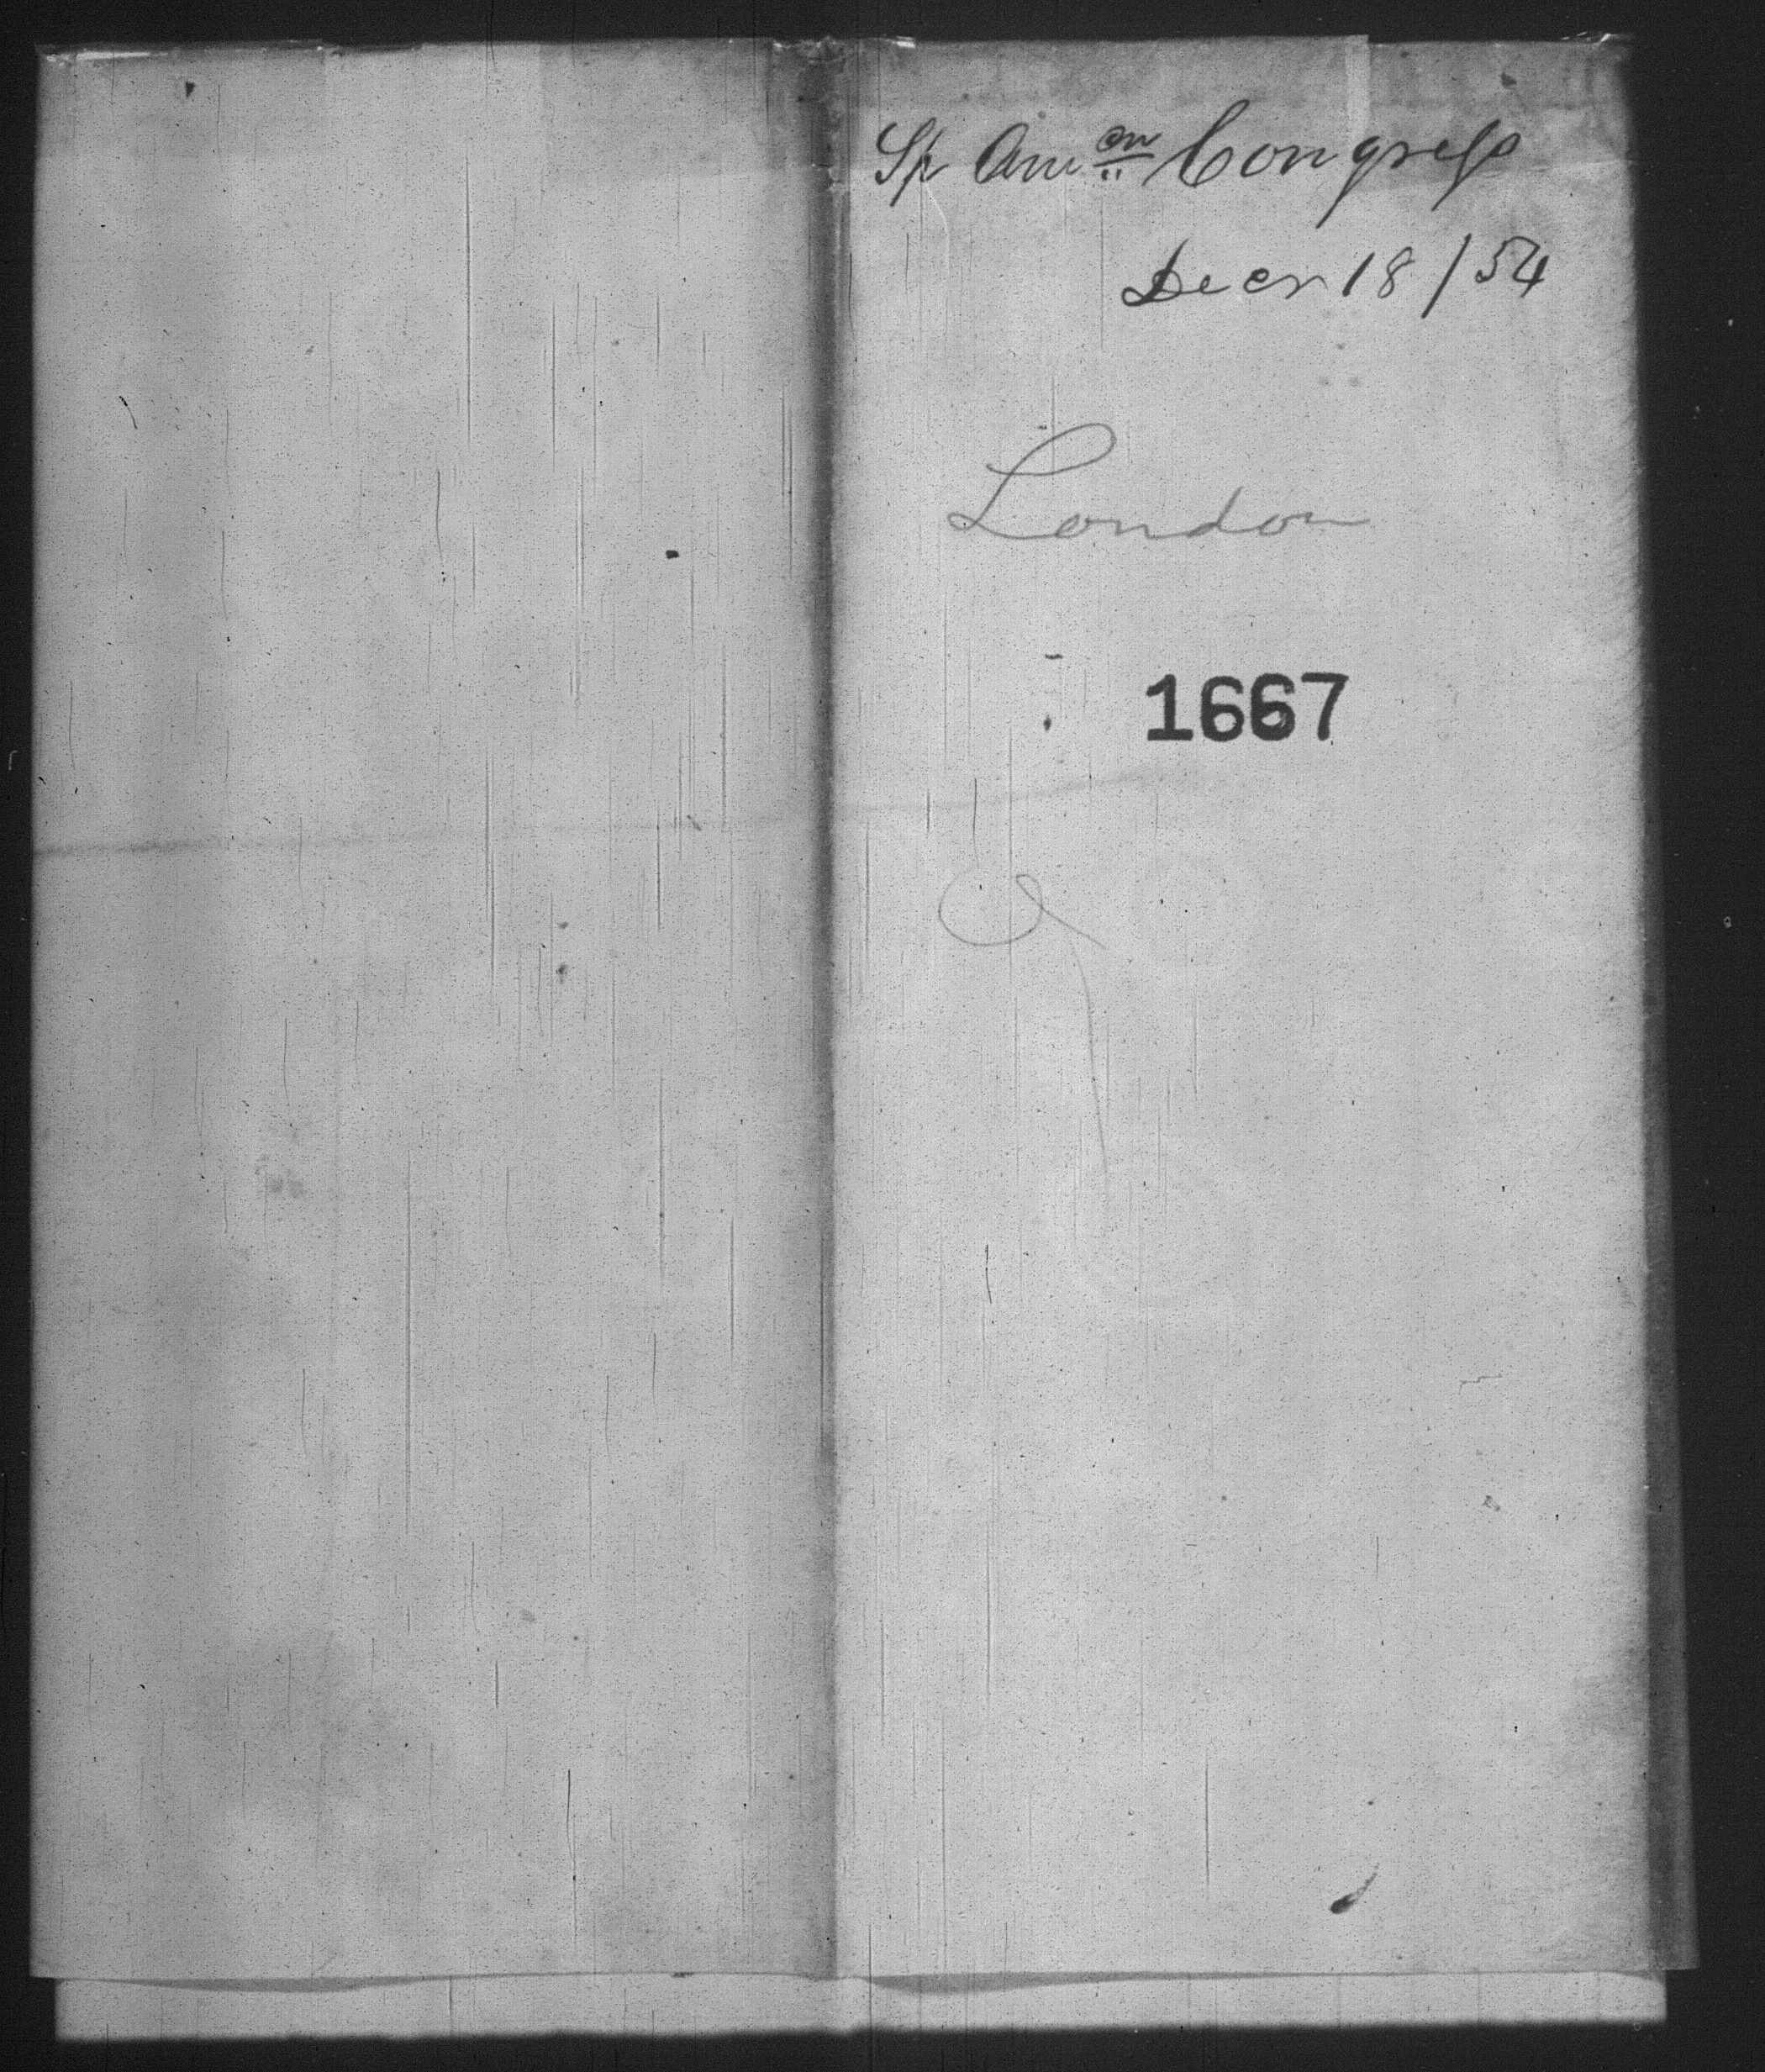 Sp Am an Congress
Decr 18/54
London
1667